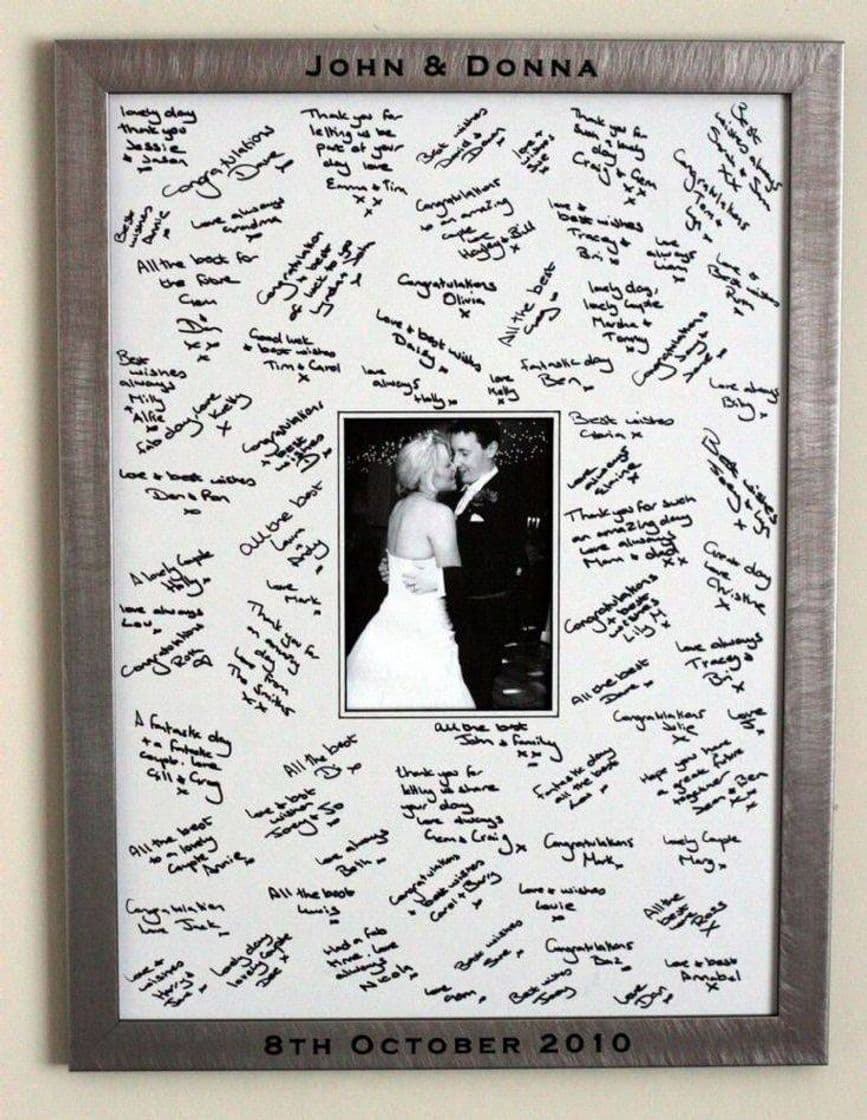 JOHN & DONNA
lovely day
thank you
Jessie
& Jason
Congratulations
Dave
x
Thank you for
letting us be
part of your
day love
Emma & Tim
x x
x
Best wishes
David &
Dawn
Thank you for
such a lovely
day
Craig & Gem
x x
x
Best
wishes always
Sarah & Sam
xx
Congratulations
Tom &
Best
wishes
Annie
x
Love always
Grandma
x
Congratulations
to an amazing
couple
love
Hayley & Bill
x
love &
best wishes
Tracey &
Bri x
love
always
Liam
x
love &
best
All the best for
the future
Gem
&
Dan
x x
x
Congratulations
& best
of luck to you
Congratulations
Olivia
x
All the best
lovely day,
lovely couple
Martha &
Tommy
x
Congratulations
Good luck
& best wishes
Tim & Carol
x
Love & best wishes
Daisy
x
fantastic day
Ben
x
Best
wishes
always
Milly
+
Alfie
love
always
Holly x
love
Kelly
x
love always
Billy
x
fab day, love
Kelly
x
Congratulations
& best
wishes
Best wishes
x
Best wishes
love & best wishes
Dan & Ron
xo
love
always
Elaine
x
All the best
Laura
&
Andy
Thank you for such
an amazing day
love always
Mam & dad
x x
A lovely couple
Holly
x
love
Mark
x
Great day
love
Christine
x
love always
Lou
x
Congratulations
Thank you for
an amazing
day
love from
The Smiths
x x
Congratulations
& best
wishes
Lily M
x
love always
Tracey &
Bri x
All the best
Dave x
Congratulations
Julie
x
love
A fantastic day
& a fantastic
couple. love
Gill & Gray
x
all the best
John & family
x x
All the best
thank you for
letting us share
your day
love always
Gem & Craig x
fantastic day
all the best
Hope you have
a great future
together
Sam & Ben
x x
love & best
wishes
Joey & Jo
x
All the best
to a lovely
couple
Annie
x
love always
Beth
x
Congratulations
Mark
x
lovely couple
Mary
x
Congratulations
& best wishes
Carol & Barry
x
All the best
Lewis
x
love & wishes
Louie
x
All the
best
Congratulation
love Jack
x
love &
wishes
Harry &
lovely day
lovely couple
Dee
x
Had a fab
time. love
always
Nicola
x
Best wishes
Sue
x
Congratulations
Baz
x
love & best
Annabel
x
love
Gem
x
Best wishes
love
Dan
x
8TH OCTOBER 2010